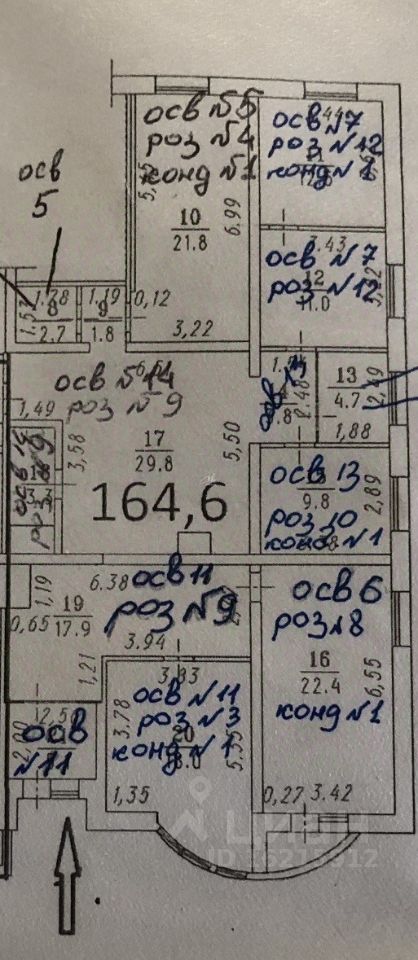 осв №5
роз №4
конд №1
5,55
6,99
10
21.8
3,22
осв №7
роз №12
конд №2
3,43
осв №7
роз №12
12
11.0
осв
5
1.78
8
1.57
2.7
1.19
9
1.8
0,12
осв №14
роз №9
1,49
3,58
17
29.8
5,50
164,6
2,48
13
4.7
2,49
1,88
осв 13
9.8
2,89
роз 10
конд №1
6.38
осв 11
1,19
19
17.9
0,65
роз №9
3.94
1,21
осв 6
роз №8
16
22.4
6,55
конд №1
0,27
3.42
3.83
осв №11
3.78
роз №3
20
конд №1
5.55
1,35
12,5
осв
№11
ЦИАН